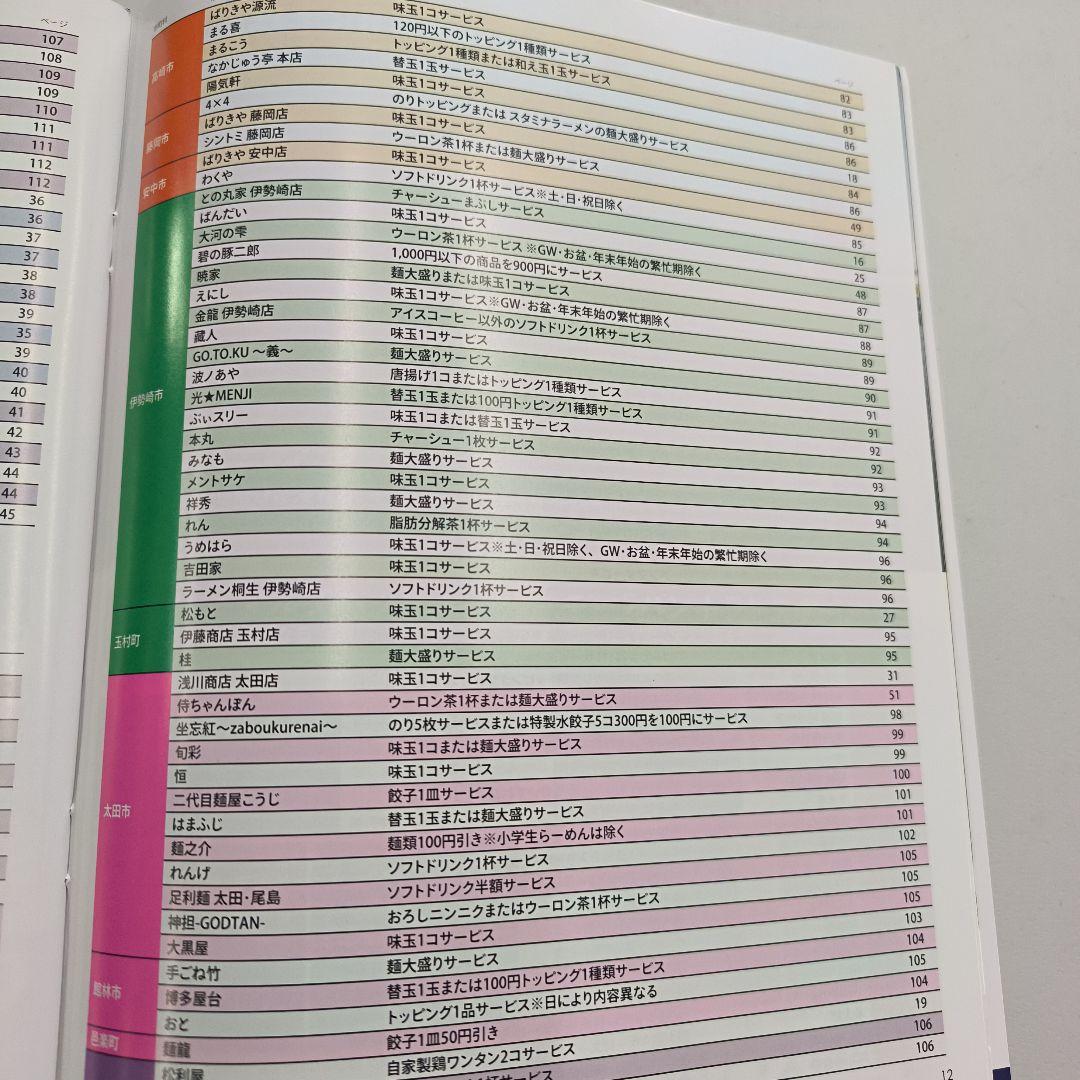 ページ
107
108
109
109
110
111
111
112
112
36
36
37
37
38
38
39
35
39
40
40
41
42
43
44
44
45
市町村
ページ
高崎市
ばりきや源流 味玉1コサービス 82
まる喜 120円以下のトッピング1種類サービス 83
まるこう トッピング1種類または和え玉1玉サービス 83
なかじゅう亭 本店 替玉1玉サービス 86
陽気軒 味玉1コサービス 86
4×4 のりトッピングまたは スタミナラーメンの麺大盛りサービス 18
藤岡市
ばりきや 藤岡店 味玉1コサービス 84
シントミ 藤岡店 ウーロン茶1杯または麺大盛りサービス 86
安中市
ばりきや 安中店 味玉1コサービス 49
わくや ソフトドリンク1杯サービス※土・日・祝日除く 85
伊勢崎市
との丸家 伊勢崎店 チャーシューまぶしサービス 16
ばんだい 味玉1コサービス 25
大河の雫 ウーロン茶1杯サービス ※GW・お盆・年末年始の繁忙期除く 48
碧の豚二郎 1,000円以下の商品を900円にサービス 87
暁家 麺大盛りまたは味玉1コサービス 87
えにし 味玉1コサービス※GW・お盆・年末年始の繁忙期除く 88
金龍 伊勢崎店 アイスコーヒー以外のソフトドリンク1杯サービス 89
藏人 味玉1コサービス 89
GO.TO.KU ～義～ 麺大盛りサービス 90
波ノあや 唐揚げ1コまたはトッピング1種類サービス 91
光★MENJI 替玉1玉または100円トッピング1種類サービス 91
ぶぃスリー 味玉1コまたは替玉1玉サービス 92
本丸 チャーシュー1枚サービス 92
みなも 麺大盛りサービス 93
メントサケ 味玉1コサービス 93
祥秀 麺大盛りサービス 94
れん 脂肪分解茶1杯サービス 94
うめはら 味玉1コサービス※土・日・祝日除く、GW・お盆・年末年始の繁忙期除く 96
吉田家 味玉1コサービス 96
ラーメン桐生 伊勢崎店 ソフトドリンク1杯サービス 96
玉村町
松もと 味玉1コサービス 27
伊藤商店 玉村店 味玉1コサービス 95
桂 麺大盛りサービス 95
太田市
浅川商店 太田店 味玉1コサービス 31
侍ちゃんぽん ウーロン茶1杯または麺大盛りサービス 51
坐忘紅～zaboukurenai～ のり5枚サービスまたは特製水餃子5コ300円を100円にサービス 98
旬彩 味玉1コまたは麺大盛りサービス 99
恒 味玉1コサービス 99
二代目麺屋こうじ 餃子1皿サービス 100
はまふじ 替玉1玉または麺大盛りサービス 101
麺之介 麺類100円引き※小学生らーめんは除く 101
れんげ ソフトドリンク1杯サービス 102
足利麺 太田・尾島 ソフトドリンク半額サービス 105
神担-GODTAN- おろしニンニクまたはウーロン茶1杯サービス 105
大黒屋 味玉1コサービス 105
館林市
手ごね竹 麺大盛りサービス 103
博多屋台 替玉1玉または100円トッピング1種類サービス 104
おと トッピング1品サービス※日により内容異なる 105
邑楽町
麺龍 餃子1皿50円引き 104
松利屋 自家製鶏ワンタン2コサービス 19
1杯サービス 106
106
12